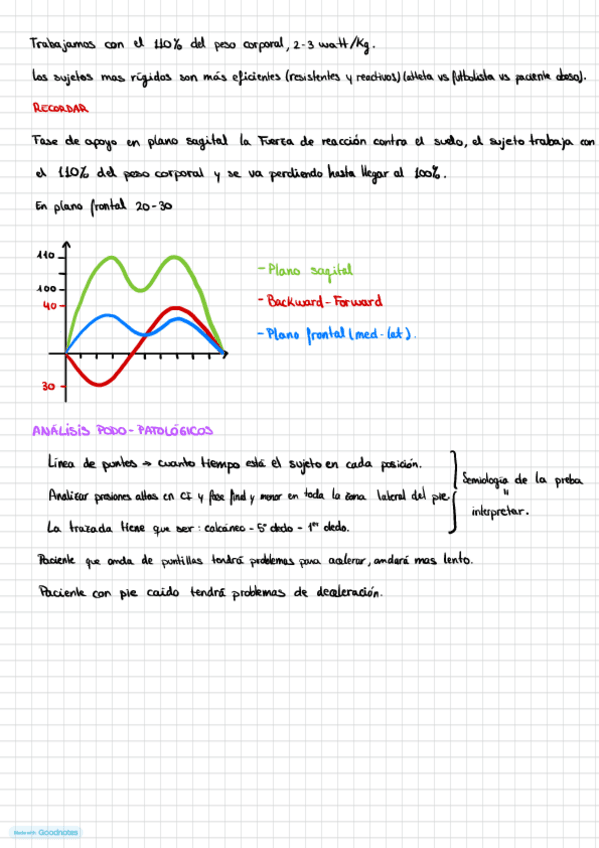 Trabajamos con el 110% del peso corporal, 2-3 watt/Kg.
Los sujetos mas rígidos son más eficientes (resistentes y reactivos) (atleta vs futbolista vs paciente obeso).
RECORDAR
Fase de apoyo en plano sagital la Fuerza de reacción contra el suelo, el sujeto trabaja con
el 110% del peso corporal y se va perdiendo hasta llegar al 100%.
En plano frontal 20-30
110
100
40
30
- Plano sagital
- Backward-Forward
- Plano frontal (med-lat).
ANÁLISIS PODO-PATOLÓGICOS
Línea de puntos → cuanto tiempo está el sujeto en cada posición.
Analizar presiones altas en CI y fase final y menor en toda la zona lateral del pie.
La trazada tiene que ser: calcáneo - 5º dedo - 1er dedo.
Semiología de la preba
"
interpretar.
Paciente que anda de puntillas tendrá problemas para acelerar, andará mas lento.
Paciente con pie caido tendrá problemas de deceleración.
Made with Goodnotes